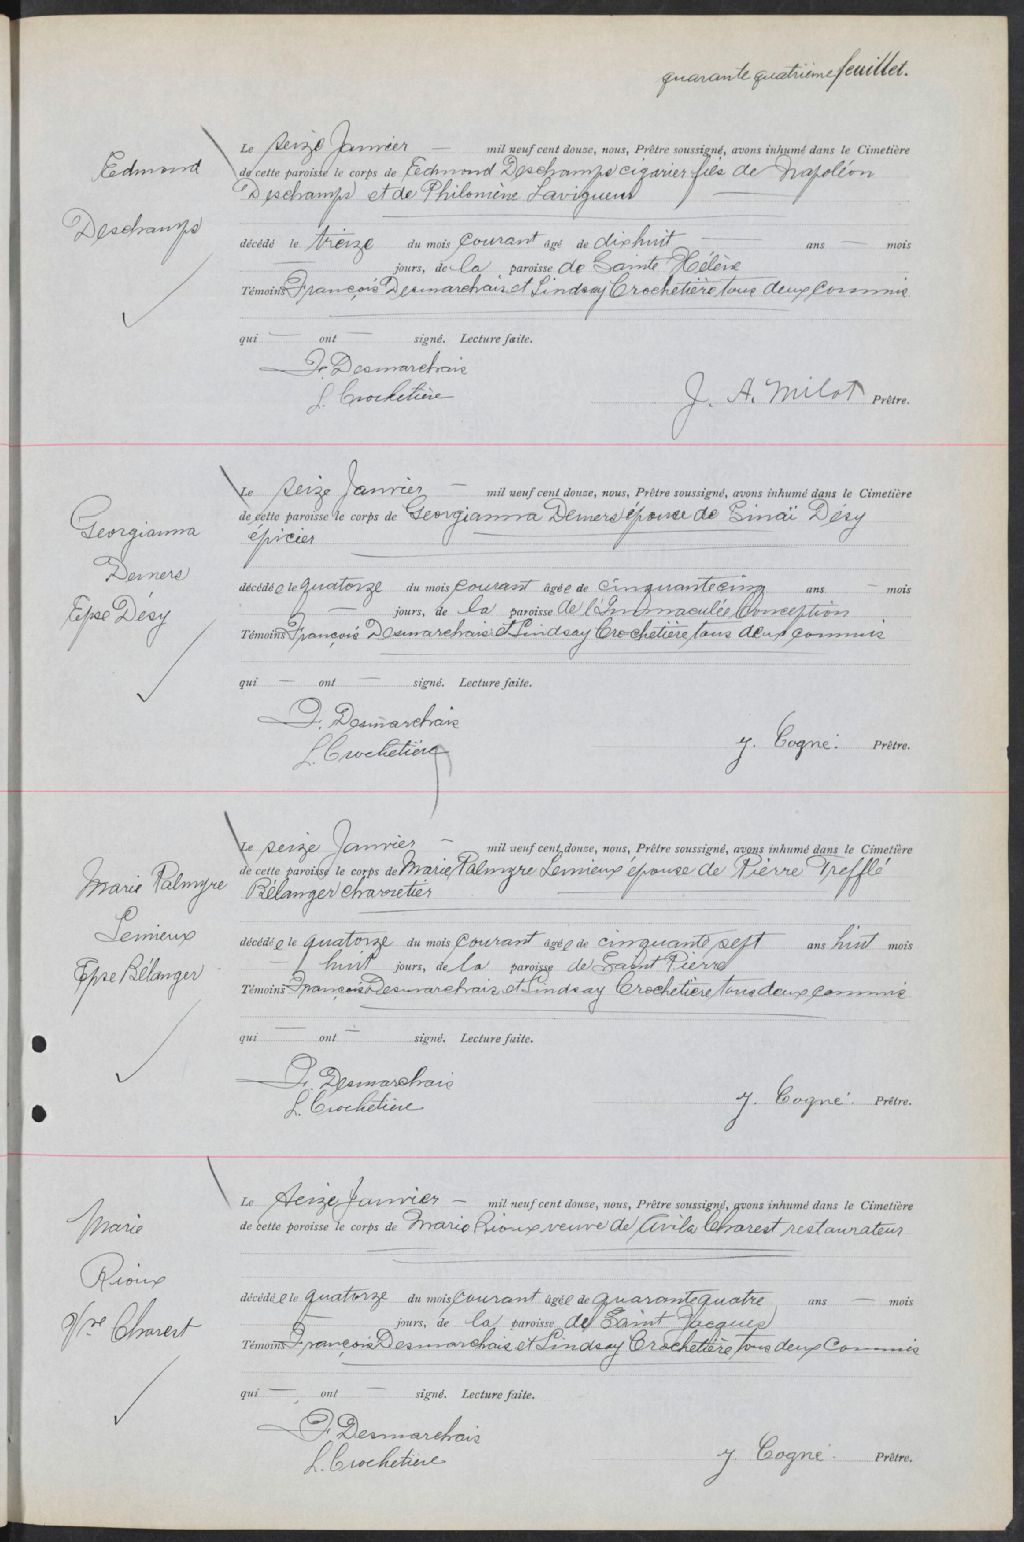 quarante quatrième feuillet.
Edmond
Deschamps
Le seize Janvier — mil neuf cent douze, nous, Prêtre soussigné, avons inhumé dans le Cimetière
de cette paroisse le corps de Edmond Deschamps cigarier fils de Napoléon
Deschamps et de Philomène Lavigueur
décédé le treize du mois courant âgé de dixhuit — ans — mois
— jours, de la paroisse de Sainte Hélène
Témoins François Desmarchais et Lindsay Crochetière tous deux commis
qui — ont — signé. Lecture faite.
F. Desmarchais
L. Crochetière
J. A. Milot Prêtre.
Georgianna
Demers
Epse Désy
Le seize Janvier — mil neuf cent douze, nous, Prêtre soussigné, avons inhumé dans le Cimetière
de cette paroisse le corps de Georgianna Demers épouse de Sinaï Désy
épicier
décédée le quatorze du mois courant âgée de cinquantecinq ans — mois
— jours, de la paroisse de l'Immaculée Conception
Témoins François Desmarchais et Lindsay Crochetière tous deux commis
qui — ont — signé. Lecture faite.
F. Desmarchais
L. Crochetière
J. Cogné. Prêtre.
Marie Palmyre
Lemieux
Epse Bélanger
Le seize Janvier — mil neuf cent douze, nous, Prêtre soussigné, avons inhumé dans le Cimetière
de cette paroisse le corps de Marie Palmyre Lemieux épouse de Pierre Trefflé
Bélanger charretier
décédée le quatorze du mois courant âgée de cinquante sept ans huit mois
— huit jours, de la paroisse de Saint Pierre
Témoins François Desmarchais et Lindsay Crochetière tous deux commis
qui — ont — signé. Lecture faite.
F. Desmarchais
L. Crochetière
J. Cogné. Prêtre.
Marie
Rioux
Vve Charest
Le seize Janvier — mil neuf cent douze, nous, Prêtre soussigné, avons inhumé dans le Cimetière
de cette paroisse le corps de Marie Rioux veuve de Avila Charest restaurateur
décédée le quatorze du mois courant âgée de quarantequatre ans — mois
— jours, de la paroisse de Saint Jacques
Témoins François Desmarchais et Lindsay Crochetière tous deux commis
qui — ont — signé. Lecture faite.
F. Desmarchais
L. Crochetière
J. Cogné. Prêtre.